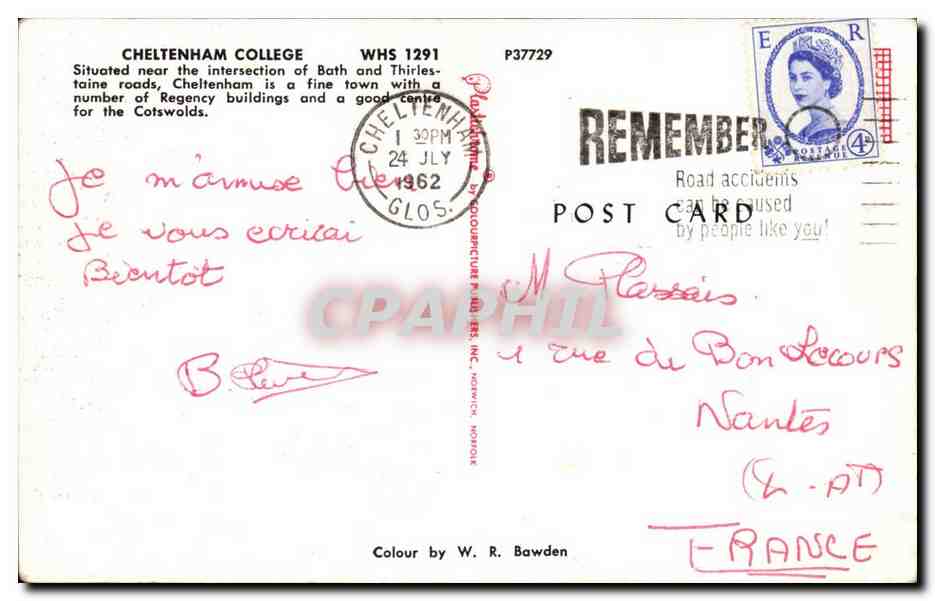 CHELTENHAM COLLEGE WHS 1291 P37729
Situated near the intersection of Bath and Thirles-
taine roads, Cheltenham is a fine town with a
number of Regency buildings and a good centre
for the Cotswolds.
CHELTENHAM
1 30PM
24 JLY
1962
GLOS.
REMEMBER
Road accidents
can be caused
by people like you!
E R
POSTAGE
REVENUE
4D
POST CARD
Plastichrome ® by COLOURPICTURE PUBLISHERS, INC., NORWICH, NORFOLK
Je m'amuse bien
Je vous ecrirai
Bientot
B.
M Plassais.
1 rue de Bon Secours
Nantes
(L-AT)
FRANCE
CPAPHIL
Colour by W. R. Bawden